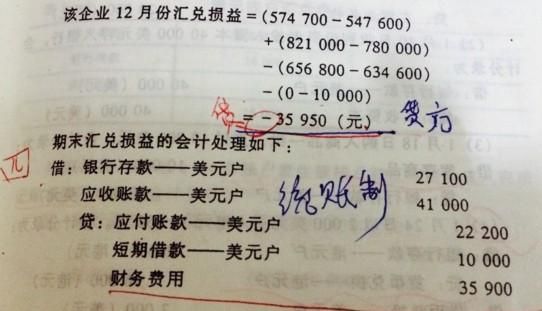 该企业12月份汇兑损益=(574 700-547 600)
+(821 000-780 000)
-(656 800-634 600)
-(0-10 000)
=-35 950(元) 贷方
期末汇兑损益的会计处理如下:
借:银行存款——美元户 27 100
应收账款——美元户 41 000
贷:应付账款——美元户 22 200
短期借款——美元户 10 000
财务费用 35 900